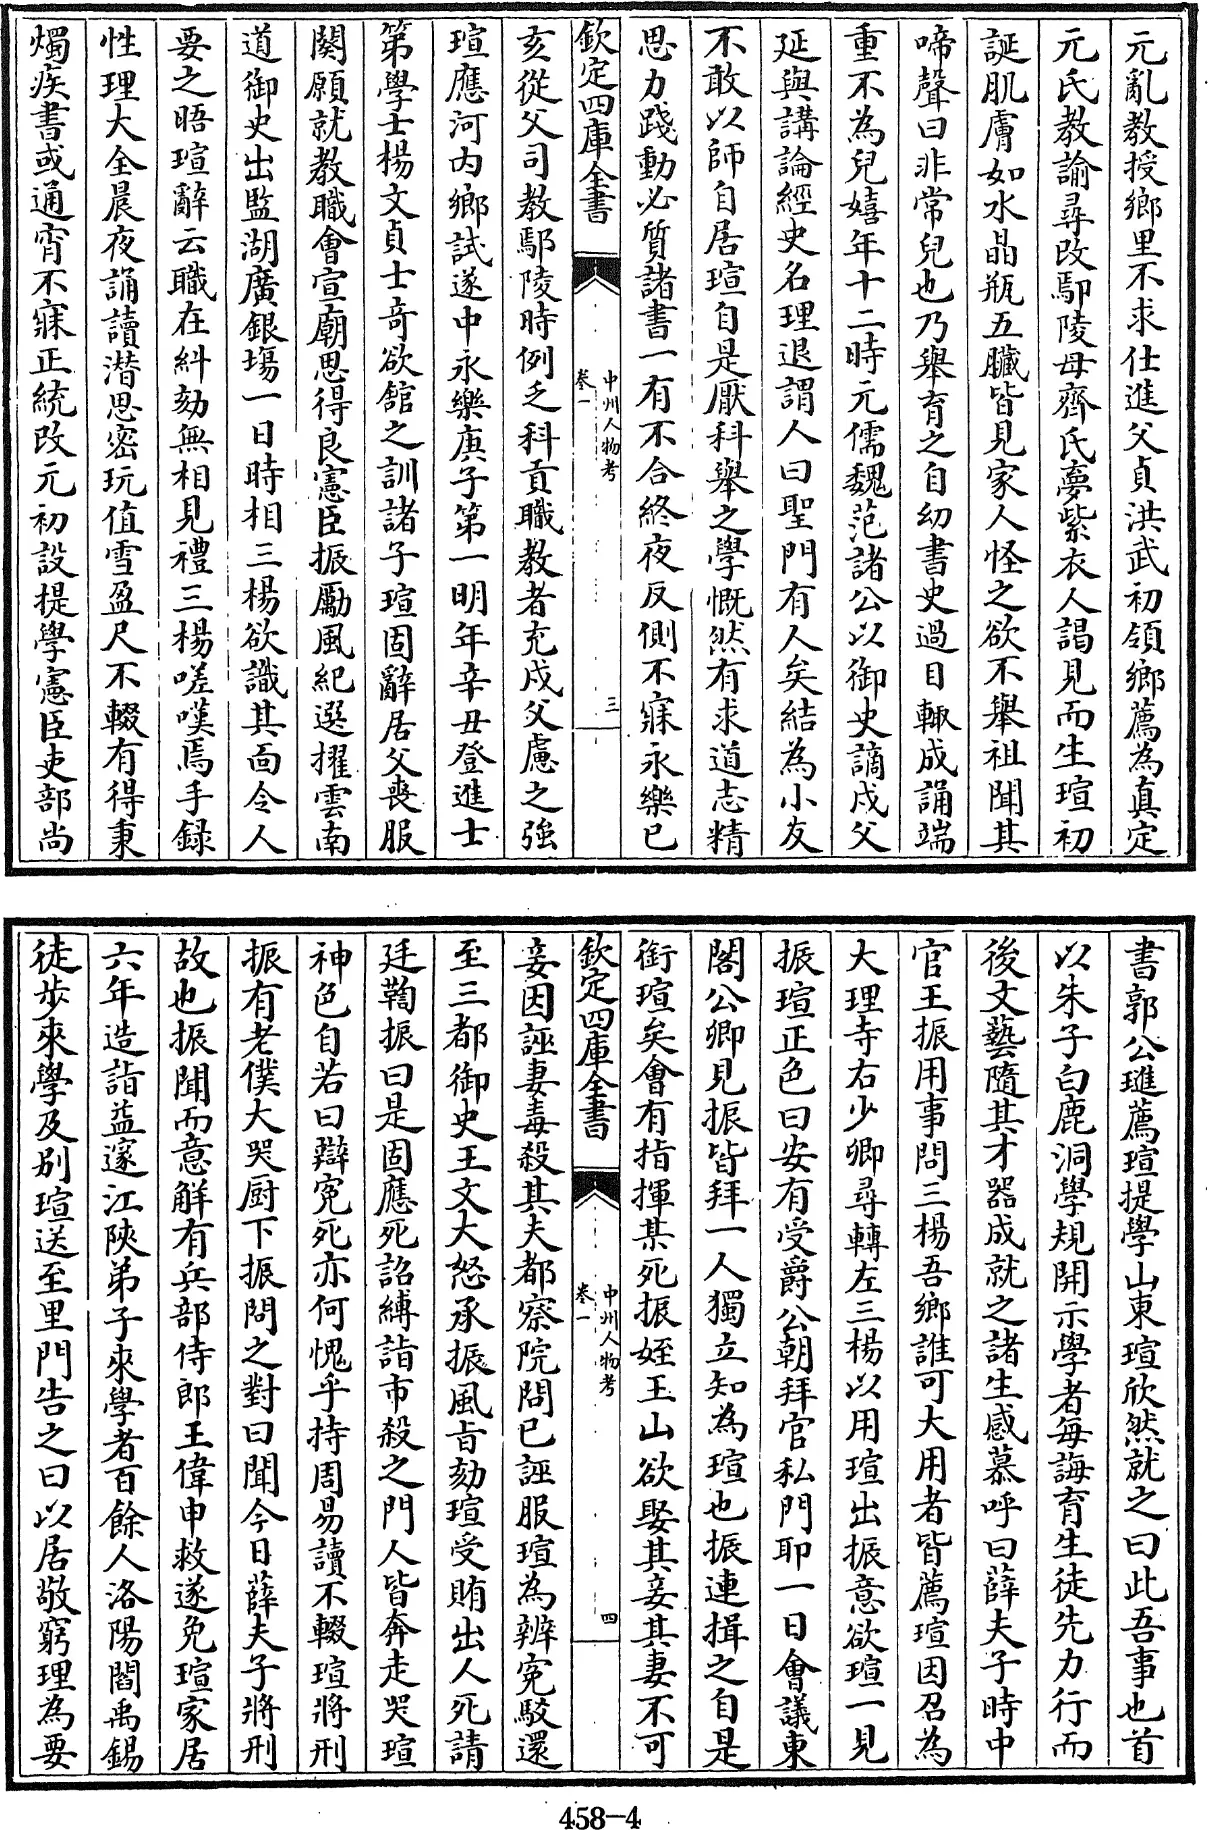 元亂教授鄉里不求仕進父貞洪武初領鄉薦為真定
元氏教諭尋改鄢陵母齊氏夢紫衣人謁見而生瑄初
誕肌膚如水晶瓶五臟皆見家人怪之欲不舉祖聞其
啼聲曰非常兒也乃舉育之自幼書史過目輙成誦端
重不為兒嬉年十二時元儒魏范諸公以御史謫戍父
延與講論經史名理退謂人曰聖門有人矣結為小友
不敢以師自居瑄自是厭科舉之學慨然有求道志精
思力踐動必質諸書一有不合終夜反側不寐永樂已
欽定四庫全書
中州人物考
卷一
三
亥從父司教鄢陵時例乏科貢職教者充戍父慮之強
瑄應河內鄉試遂中永樂庚子第一明年辛丑登進士
第學士楊文貞士奇欲館之訓諸子瑄固辭居父喪服
闋願就教職會宣廟思得良憲臣振勵風紀選擢雲南
道御史出監湖廣銀場一日時相三楊欲識其面令人
要之晤瑄辭云職在糾劾無相見禮三楊嗟嘆焉手録
性理大全晨夜誦讀潜思密玩值雪盈尺不輟有得秉
燭疾書或通宵不寐正統改元初設提學憲臣吏部尚
書郭公璡薦瑄提學山東瑄欣然就之曰此吾事也首
以朱子白鹿洞學規開示學者每誨育生徒先力行而
後文藝隨其才器成就之諸生感慕呼曰薛夫子時中
官王振用事問三楊吾鄉誰可大用者皆薦瑄因召為
大理寺右少卿尋轉左三楊以用瑄出振意欲瑄一見
振瑄正色曰安有受爵公朝拜官私門耶一日會議東
閣公卿見振皆拜一人獨立知為瑄也振連揖之自是
銜瑄矣會有指揮某死振姪王山欲娶其妾其妻不可
欽定四庫全書
中州人物考
卷一
四
妾因誣妻毒殺其夫都察院問已誣服瑄為辨寃駁還
至三都御史王文大怒承振風旨劾瑄受賄出人死請
廷鞫振曰是固應死詔縛詣市殺之門人皆奔走哭瑄
神色自若曰辯寃死亦何愧乎持周易讀不輟瑄將刑
振有老僕大哭厨下振問之對曰聞今日薛夫子將刑
故也振聞而意解有兵部侍郎王偉申救遂免瑄家居
六年造詣益邃江陝弟子來學者百餘人洛陽閻禹錫
徒步來學及别瑄送至里門告之曰以居敬窮理為要
458-4